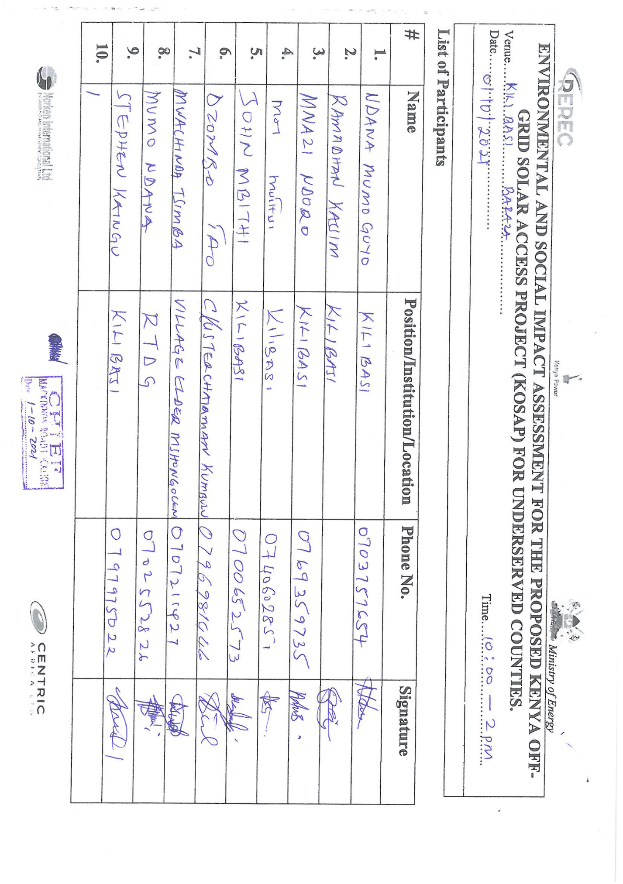 REREC
Kenya Power
Ministry of Energy
ENVIRONMENTAL AND SOCIAL IMPACT ASSESSMENT FOR THE PROPOSED KENYA OFF-
GRID SOLAR ACCESS PROJECT (KOSAP) FOR UNDERSERVED COUNTIES.
Venue.....KILIBASI BARAZA
Date....01/10/2024 Time....10:00 – 2 P.M.
List of Participants
# Name Position/Institution/Location Phone No. Signature
1. NDANA MUMO GUYO KILIBASI 0703757654
2. RAMADHAN KASIM KILIBASI
3. MNAZI NDORO KILIBASI 0769359735
4. KILIBASI 0740602851
5. JOHN MBITHI KILIBASI 0700652573
6. DZOMBO TAO CLUSTER CHAIRMAN 0796981066
7. MWACHINDA TSIMBA VILLAGE ELDER 0707211927
8. MUMO NDANA RTDG 0702552826
9. STEPHEN KAINGU KILIBASI 0797975022
10.
Norken International Ltd
CHIEF
Date 1-10-2024
CENTRIC
AFRICA LTD